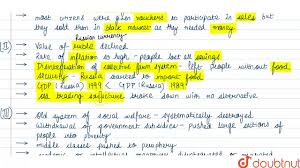 → most workers were given vouchers to participate in sales but
they sold them in black market as they needed money.
Russian currency
II → Value of ruble declined
→ Rate of inflation so high, people lost all savings
→ Disintegration of collective farm system - left people without food
security - Russia started to import food
→ GDP (Russia) 1999 < GDP (Russia) 1989
→ Old trading structure broke down with no alternative
III → Old system of social welfare - systematically destroyed
→ Withdrawal of government subsidies - pushed large sections of
people into poverty
→ middle classes pushed to periphery
doubtnut